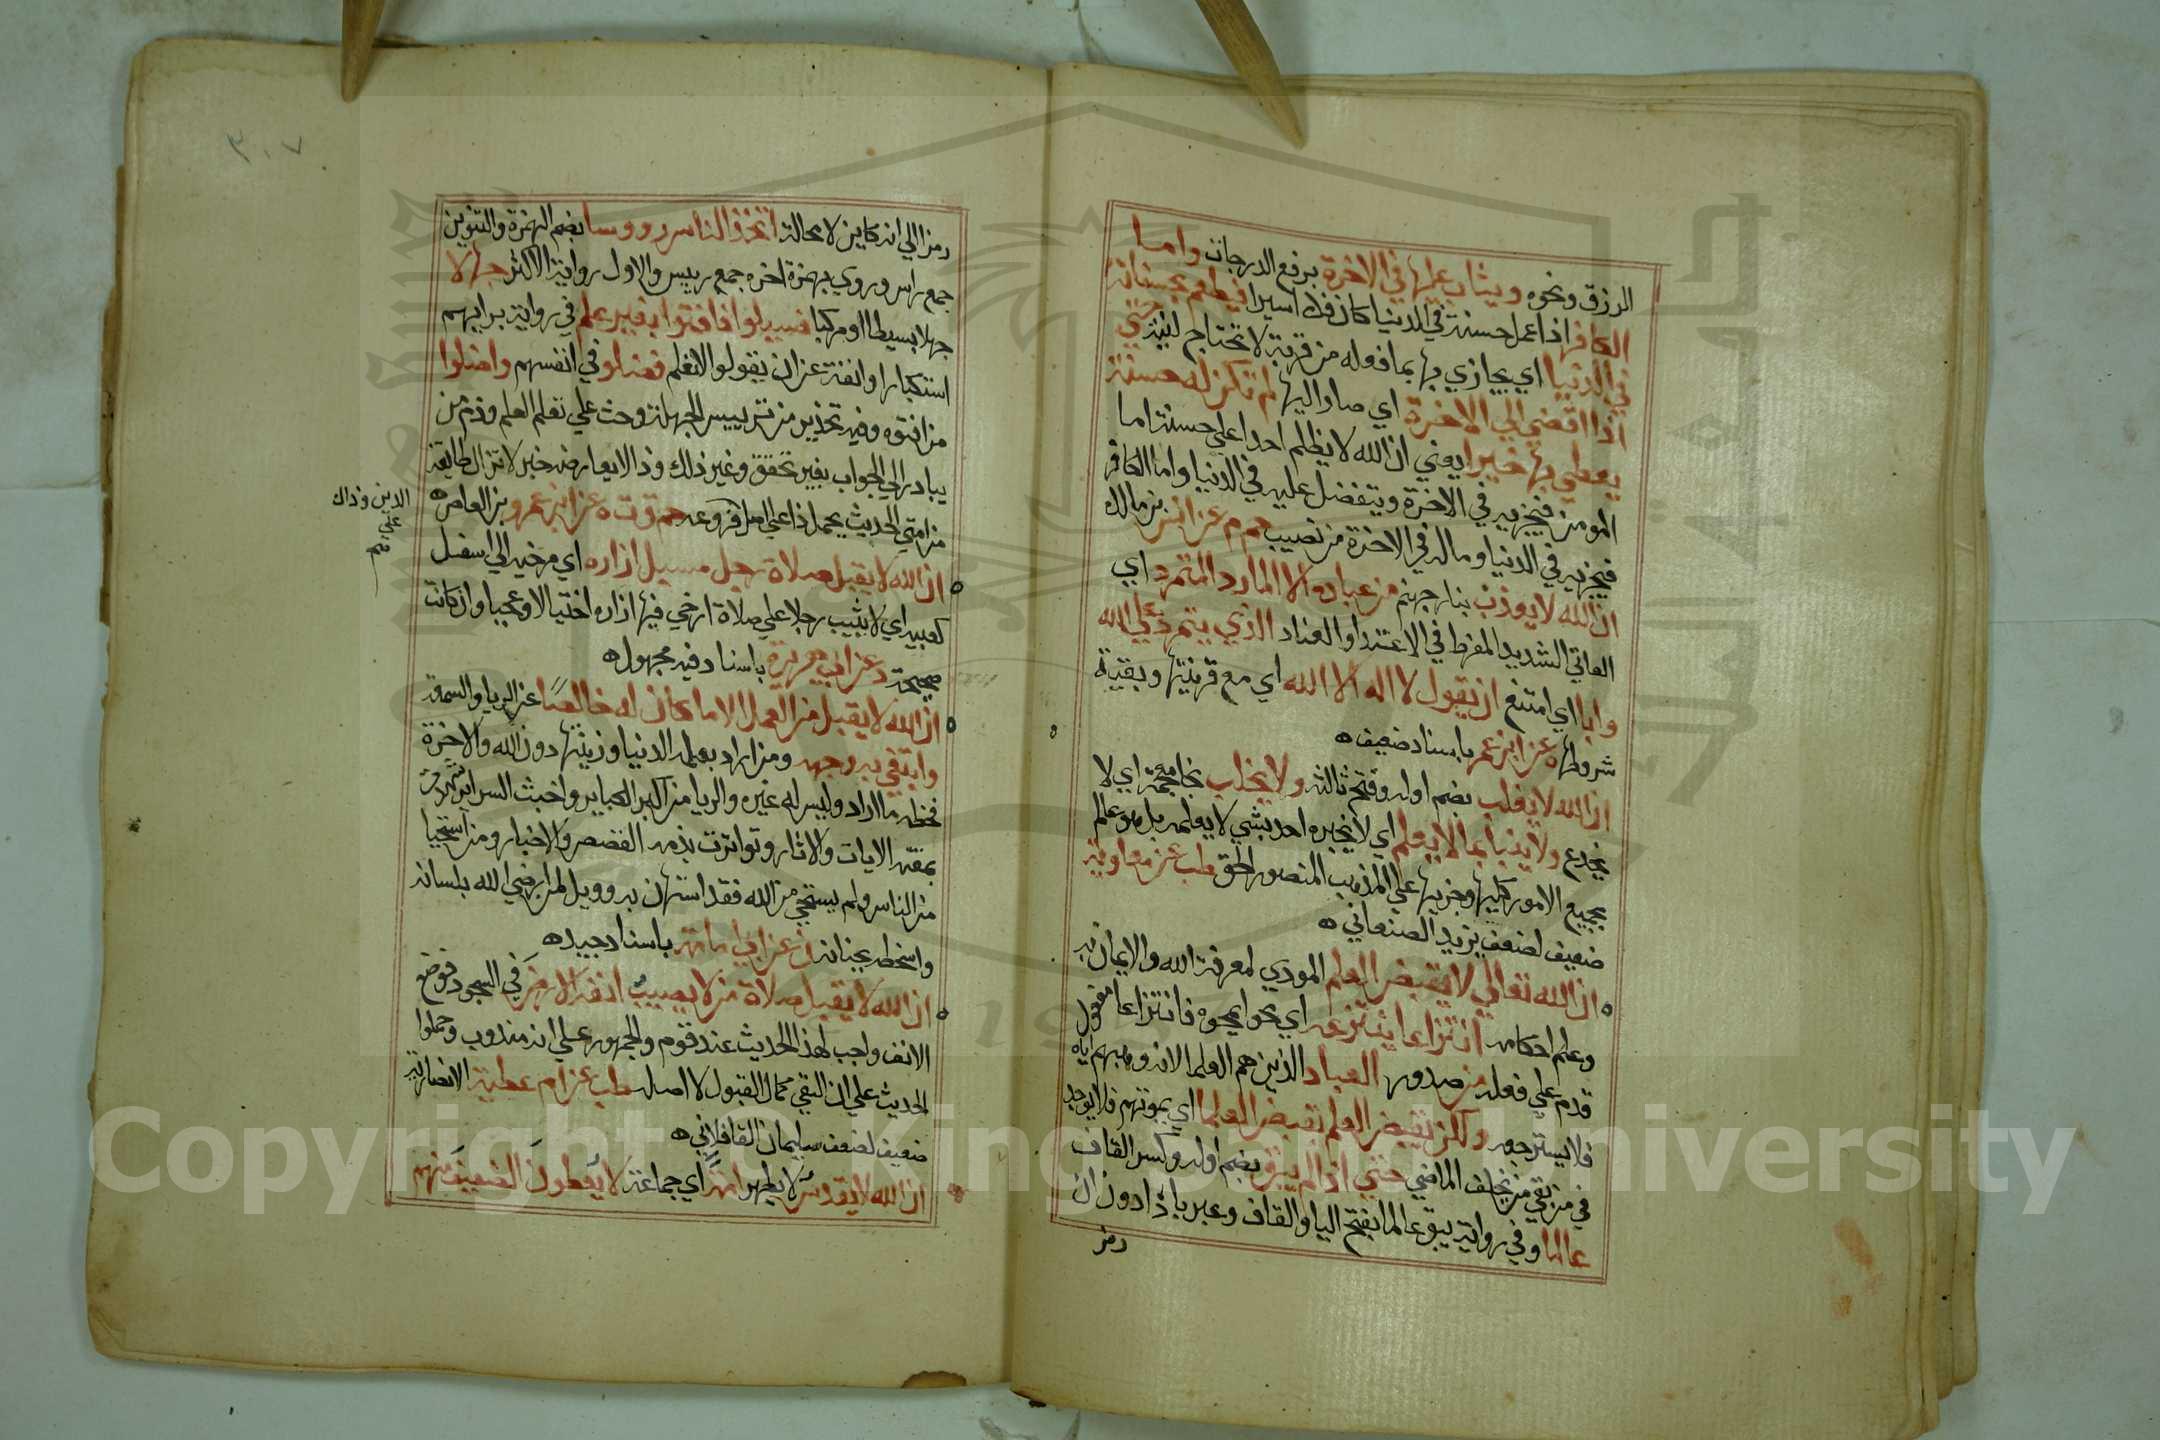 الرزق ونحوه ويثاب عليها في الاخرة برفع الدرجات واما
الكافر اذا عمل حسنة في الدنيا كان فك اسيرا فيطعم بحسناته
في الدنيا اي يجازي بها بما فعله من قربة لا تحتاج لنية حتي
اذا افضي الي الاخرة اي صار اليها لم تكن له حسنة
يعطي بها خيرا يعني ان الله لا يظلم احدا علي حسنته اما
المومن فيجزيه في الاخرة ويتفضل عليه في الدنيا واما الكافر
فيجزيه في الدنيا وماله في الاخرة من نصيب حم م عن انس بن مالك
ان الله لا يعذب بنار جهنم من عباده الا المارد المتمرد اي
العاتي الشديد المفرط في الاعتدا والعناد الذي يتمرد علي الله
وابا اي امتنع ان يقول لا اله الا الله اي مع قرينتها وبقية
شروطها ه عن ابن عمر باسناد ضعيف ه
ان الله لا يغلب بضم اوله وفتح ثالثه ولا يخلب بخا معجمة اي لا
يخدع ولا ينبا بما لا يعلم اي لا يخبره احد بشي لا يعلمه بل هو عالم
بجميع الامور كليها وجزيها علي المذهب المنصور الحق طب عن معاوية
ضعيف لضعف يزيد الصنعاني ه
ان الله تعالي لا يقبض العلم المودي لمعرفة الله والايمان به
وعلم احكامه انتزاعا ينتزعه اي محوا يمحوه فانتزاعا مفعول
قدم علي فعله من صدور العباد الذين هم العلما لانه وهبهم اياه
فلا يسترجعه ولكن يقبض العلم بقبض العلما اي بموتهم فلا يوجد
في من بقي من يخلف الماضي حتي اذا لم يبق بضم اوله وكسر القاف
عالما وفي رواية يبق عالما بفتح اليا والقاف وعبر باذا دون ان
رمز
٣٠٧
رمزا الي انه كاين لا محالة اتخذ الناس رووسا بضم الهمزة والتنوين
جمع راس وروي بهمزة اخره جمع رييس والاول رواية الاكثر جهالا
جهلا بسيطا او مركبا فسيلوا فافتوا بغير علم في رواية برايهم
استكبارا وانفة عن ان يقولوا لا نعلم فضلو في انفسهم واضلوا
من افتوه وفيه تحذير من ترييس الجهلة وحث علي تعلم العلم وذم من
يبادر الي الجواب بغير تحقق وغير ذلك وذا لا يعارضه خبر لا تزال طايفة
من امتي الحديث بحمل ذا علي اصل فروعه حم ق ت ه عن ابن عمرو بن العاص ه
الدين وذاك
علي
ان الله لا يقبل صلاة رجل مسبل ازاره اي مرخيه الي اسفل
كعبيه اي لا يثيب رجلا علي صلاة ارخي فيها ازاره اختيالا وعجبا وان كانت
صحيحة د عن ابي هريرة باسناد فيه مجهول ه
ان الله لا يقبل من العمل الا ما كان له خالصا عن الريا والسمعة
وابتغي به وجهه ومن اراد بعلمه الدنيا وزينتها دون الله والاخرة
فحظه ما اراد وليس له غيره والريا من اكبر الكباير واخبث السراير شهدت
بمقته الايات والاثار وتواترت بذمه القصص والاخبار ومن استحيا
من الناس ولم يستحي من الله فقد استهان به وويل لمن ارضي الله بلسانه
واسخطه بجنانه ن عن ابي امامة باسناد جيد ه
ان الله لا يقبل صلاة من لا يصيب انفه الارض في السجود فوضع
الانف واجب لهذا الحديث عند قوم والجمهور علي انه مندوب وحملوا
الحديث علي ان النفي كمال القبول لا اصله طب عن ام عطية الانصارية
ضعيف لضعف سليمان القافلاني ه
ان الله لا يقدس لا يطهر امة اي جماعة لا يعطون الضعيف منهم
Copyright © King Saud University